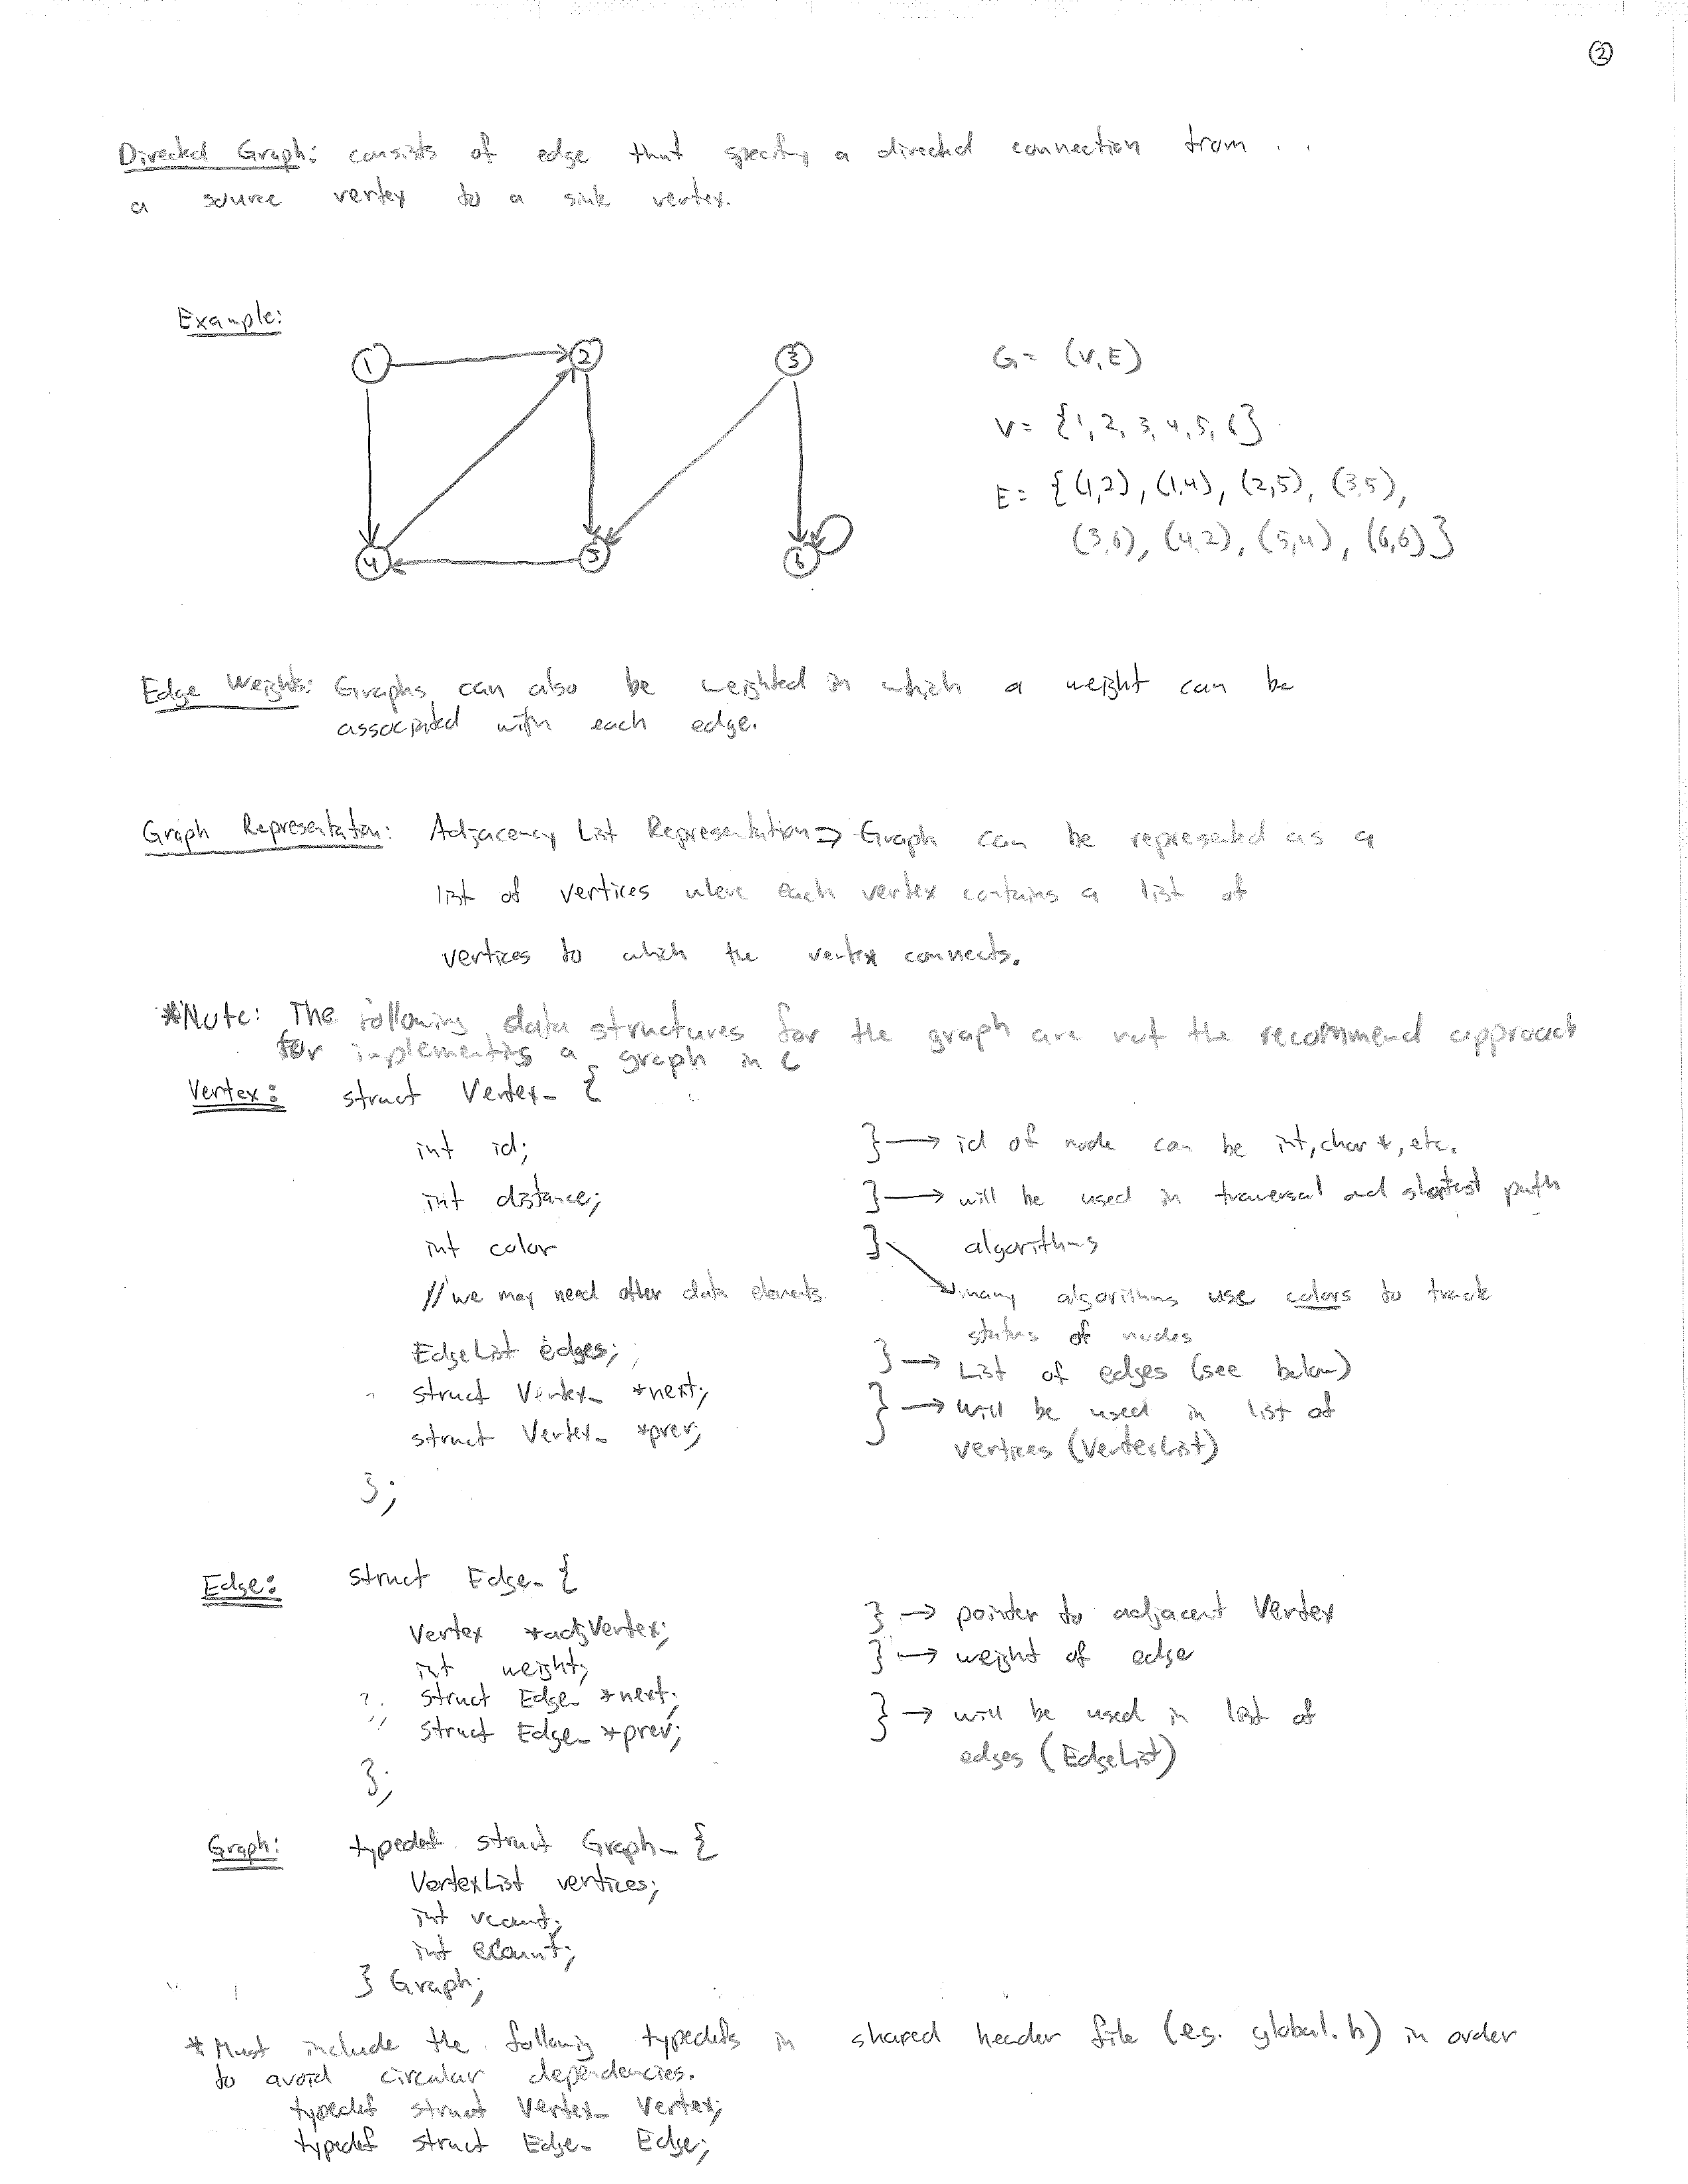 2
Directed Graph: consists of edge that specify a directed connection from
a source vertex to a sink vertex.
Example:
1 2 3
4 5 6
G = (V,E)
V = {1, 2, 3, 4, 5, 6}
E = {(1,2), (1,4), (2,5), (3,5),
(3,6), (4,2), (5,4), (6,6)}
Edge Weights: Graphs can also be weighted in which a weight can be
associated with each edge.
Graph Representation: Adjacency List Representation ⇒ Graph can be represented as a
list of vertices where each vertex contains a list of
vertices to which the vertex connects.
*Note: The following data structures for the graph are not the recommend approach
for implementing a graph in C
Vertex: struct Vertex_ {
int id; } → id of node can be int, char *, etc.
int distance; } → will be used in traversal and shortest path
int color } algorithms
// we may need other data elements → many algorithms use colors to track
status of nodes
EdgeList edges; } → List of edges (see below)
struct Vertex_ *next; } → will be used in list of
struct Vertex_ *prev; vertices (VertexList)
};
Edge: struct Edge_ {
Vertex *adjVertex; } → pointer to adjacent Vertex
int weight; } → weight of edge
struct Edge_ *next; } → will be used in list of
struct Edge_ *prev; edges (EdgeList)
};
Graph: typedef struct Graph_ {
VertexList vertices;
int vcount;
int ecount;
} Graph;
* Must include the following typedefs in shared header file (e.g. global.h) in order
to avoid circular dependencies.
typedef struct Vertex_ Vertex;
typedef struct Edge_ Edge;